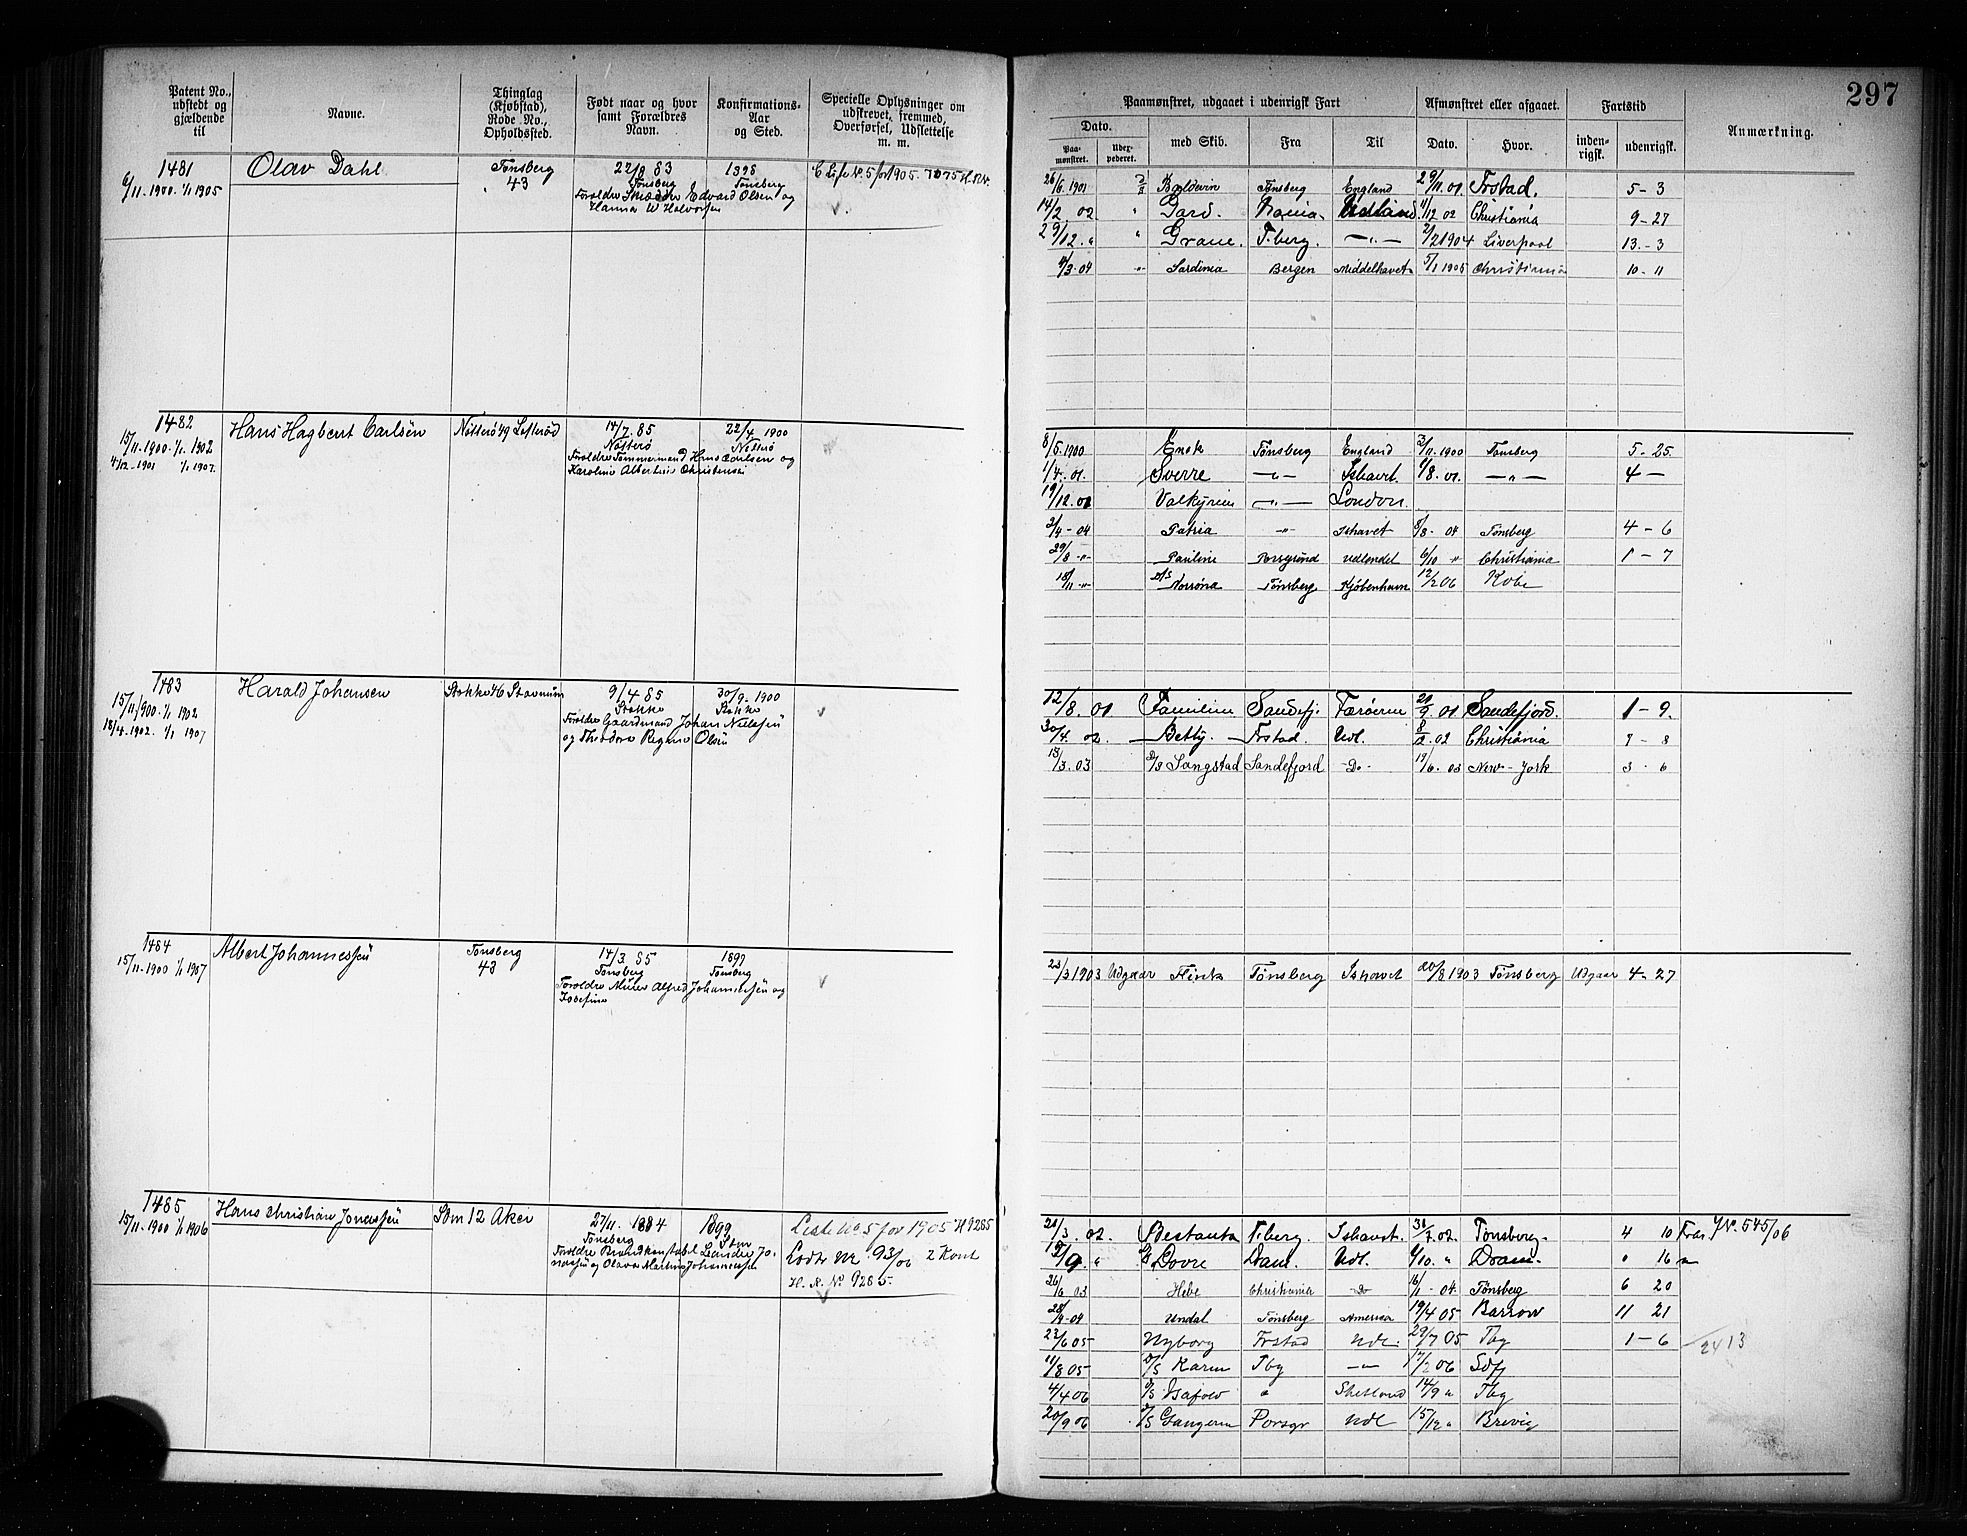 297
Patent No., udstedt og gjældende til
Navne.
Thinglag (Kjøbstad), Rode No., Opholdssted.
Født naar og hvor samt Forældres Navn.
Konfirmations-Aar og Sted.
Specielle Oplysninger om udskrevet, fremmed, Overførsel, Udslettelse m. m.
Paamønstret, udgaaet i udenrigsk Fart
Afmønstret eller afgaaet.
Fartstid
Anmærkning.
Dato.
Paa-mønstret.
med Skib.
Fra
Til
Dato.
Hvor.
inden-rigsk.
udenrigsk.
1481 Olav Dahl Tønsberg 22/8 83
6/11.1900. 1/1 1905 43 Tønsberg Tønsberg
Forældre Edvard Olsen og
Hanna W Halvorsen
26/6 1901 Balderin Tønsberg England 29/11.01. Frstad. 5-3
14/2.02 " Gard. Udland. 11/12 02 Christiania 9-27
29/12." " Grane. T.berg. —"— 2/2 1904 Liverpool 13.-3
4/3.04 " Sardinia Bergen Middelhavet 5/1 1905 Christiania 10-11
1482 Hans Hagbert Carlsen Nøtterø 49 14/7.85 22/4 1900
15/11.1900. 1/1 1902 Nøtterø Nøtterø
4/12.1901 1/1 1907. Forældre Tømmermand Hans Carlsen og
Karoline Albertine Christensen
8/5.1900 Enok Tønsberg England 3/11.1900 Tønsberg 5-25.
1/4.01. Sverre —"— Ishavet. 1/8.01. —"— 4—
19/12.01 Valkyrien —"— London.
2/4-04 Patria —"— Ishavet 8/8-04 Tønsberg 4-6
29/8-" Pauline Porsgrund udlandet 6/10 " Christiania 1-7
18/11-" D/S Norrøna Tønsberg Kjøbenhavn 12/2 06 Kobe
1483 Harald Johansen Stokke 46 9/4 85 30/9.1900
15/11.1900. 1/1 1902 Stokke Stokke
18/4.1902. 1/1 1907 Forældre Gaardmand Johan Nielsen
og Theodora Regine Olsen
12/8.01 Familien Sandefj. Færøerne 20/9.01 Sandefjord. 1-9.
30/4.02 Betty. Frstad. Udl. 8/2.02 Christiania 9-8
18/3.03 D/S Sangstad Sandefjord -Do- 19/6.03 New-York 3-6
1484 Albert Johannessen Tønsberg 14/3.85 1899
15/11.1900 1/1 1907 43 Tønsberg Tønsberg
Forældre Murer Alfred Johannessen og
Josefine
23/3 1903 Udgaar Flink Tønsberg Ishavet 20/8 1903 Tønsberg Udgaar 4-27
1485 Hans Christian Jonassen Sem 12 Aker 27/11.1884 1899 Liste No 5 for 1905 N 9285
15/11.1900 1/1 1906 Tønsberg Sem Lodtr Nr 93/06 2 Kont
Forældre Brandkonstabel Leander Jo-
nassen og Olava Martine Johannessen
H. R. No 9285.
21/3.02. T.berg. Ishavet. 31/7.02. Tønsberg. 4 10 No. 545/06
15/9." D/S Dovre Dram. Udl. 6/10." Dram. " 16
26/6 03 Hebe Christiania Do 16/1-04. Tønsberg 6 20
28/4-04 Undal Tønsberg Amerika 19/4 05 Barrow 11 21
22/6 05 Nyborg Frstad Udl. 29/7 05 Tbg 1-6
11/8 05 D/S Karin Tbg —"— 17/2 06 Sdfj
4/4 06 D/S Isafold " Shetland 14/9 " Tbg
20/9 06 D/S Gangeren Porsgr Udl 15/12 " Brevig